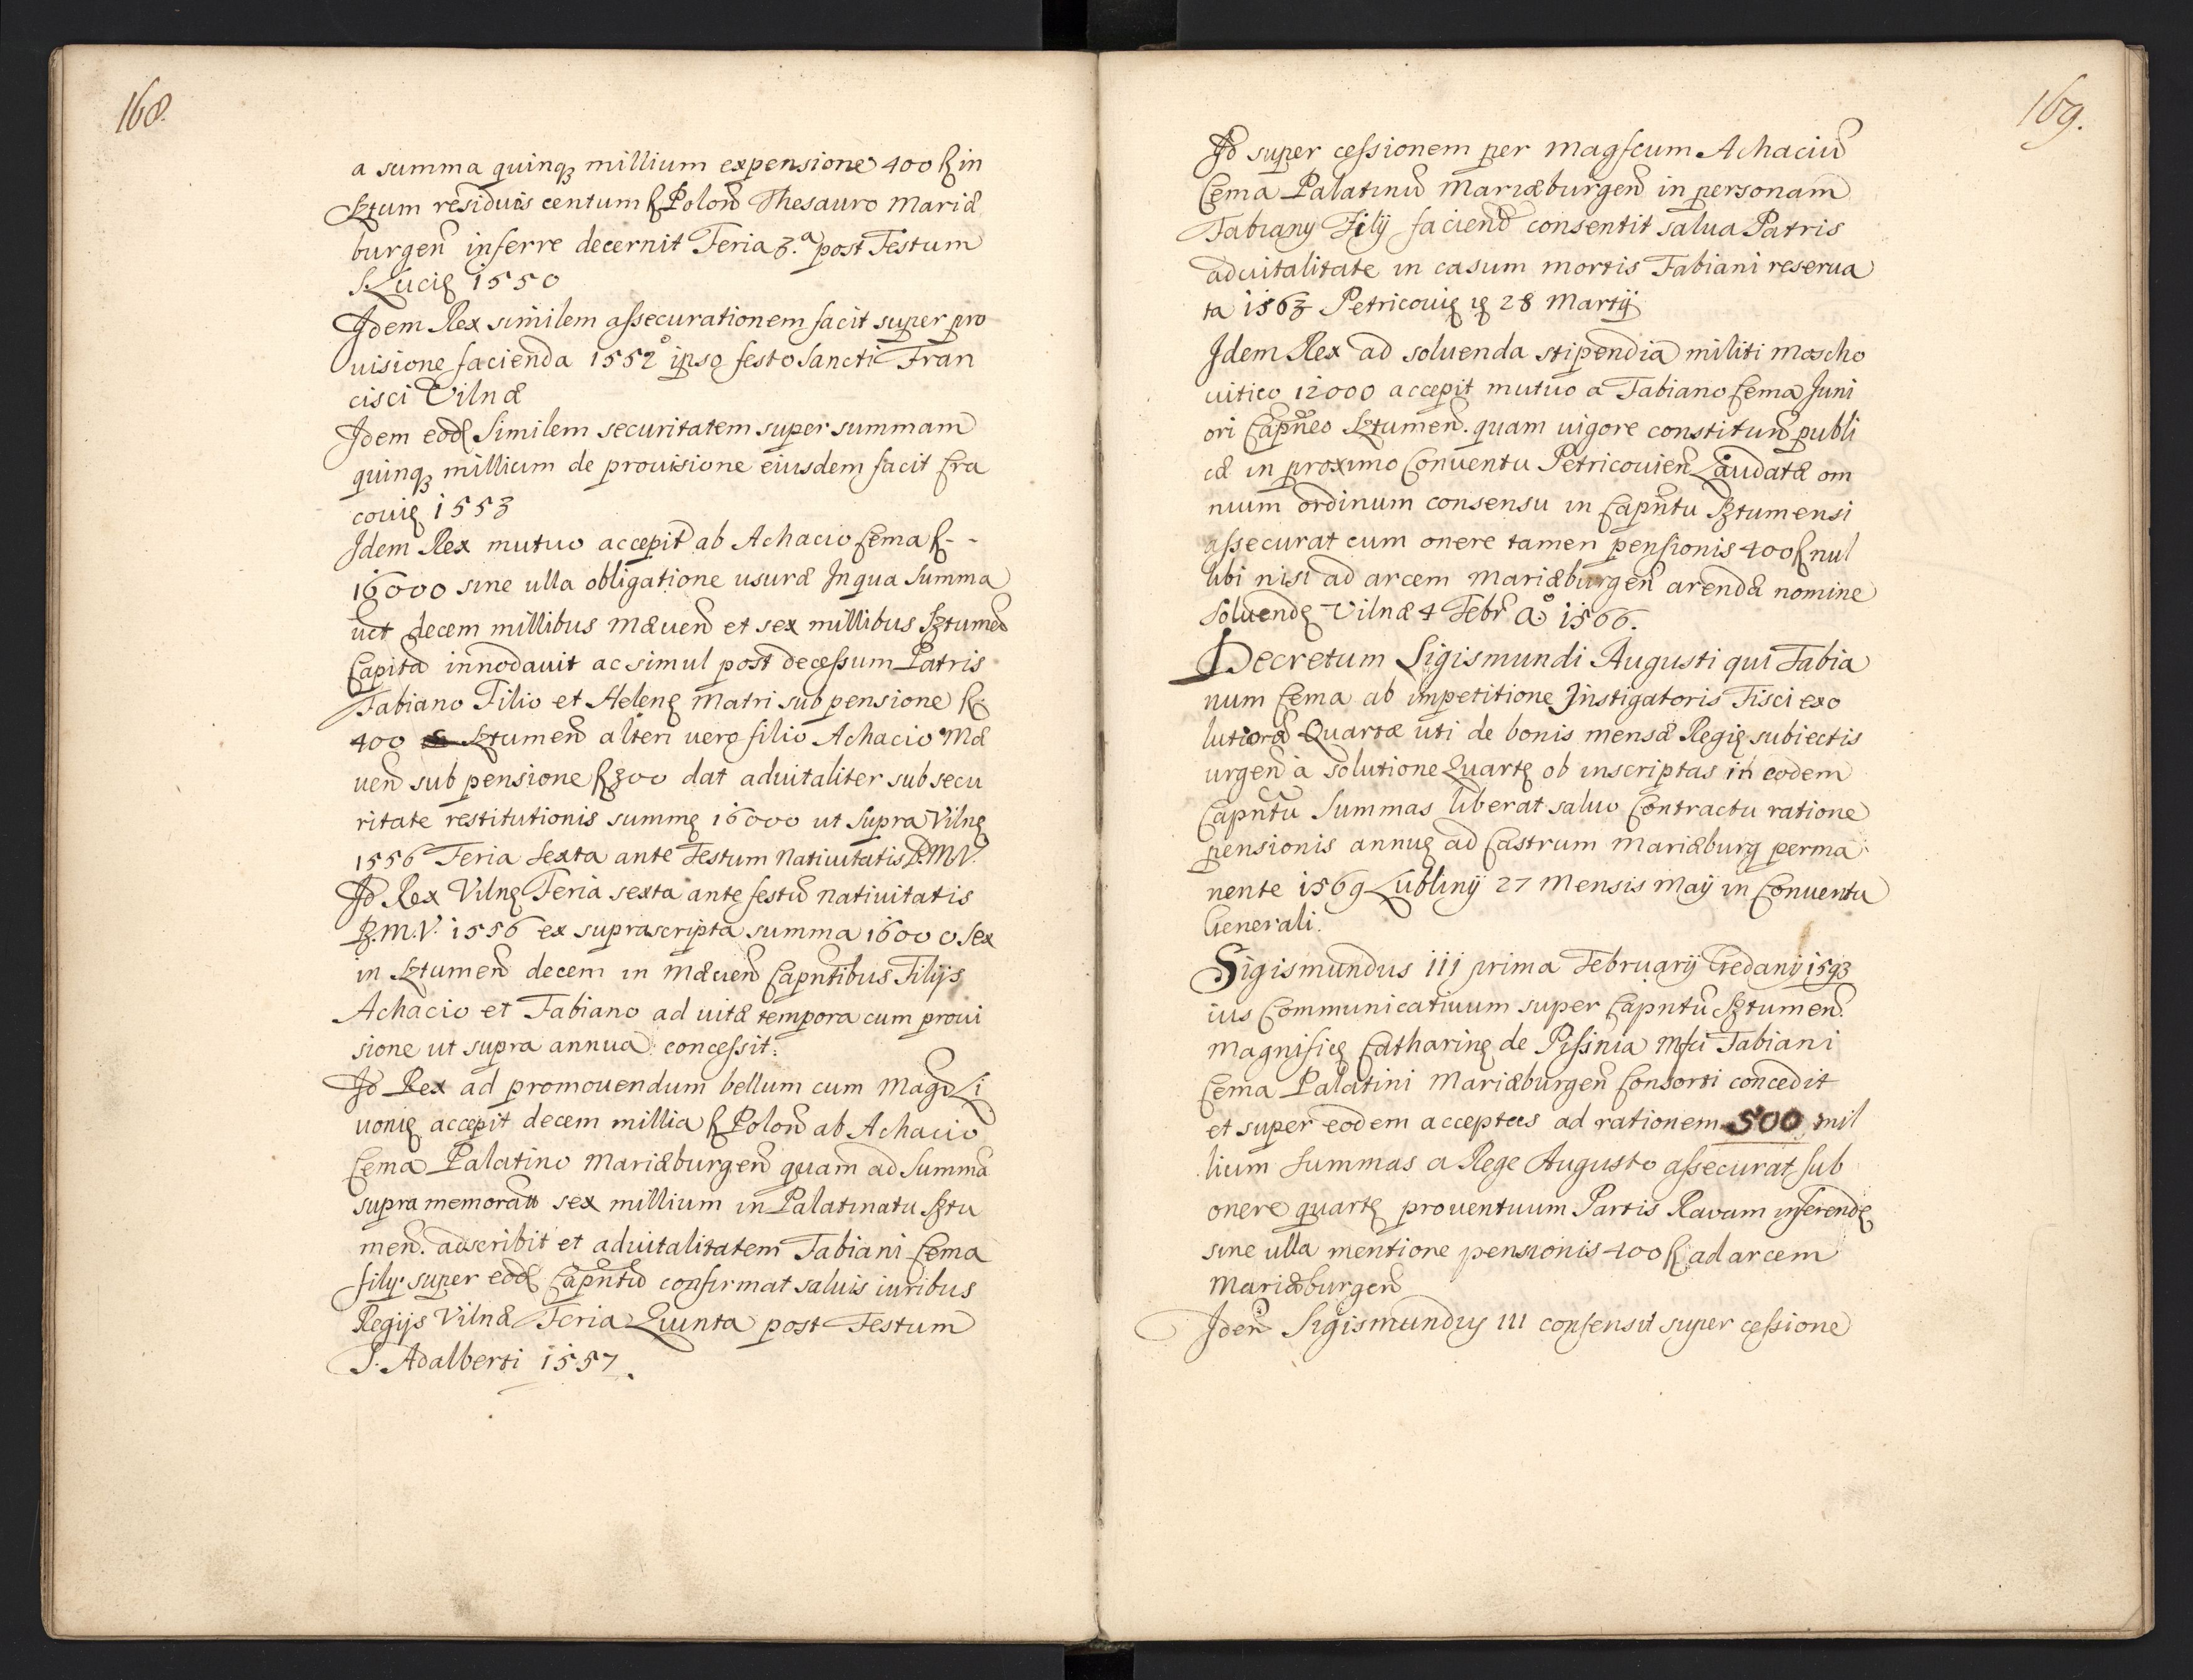 168.
a summa quinq₃ millium expensione 400 fl in
Sztum residuis centum fl Polon Thesauro Mariæ
burgen inferre decernit Feria 3.ª post Festum
S. Lucię 1550
Idem Rex similem assecurationem facit super pro
uisione facienda 1552° ipso festo Sancti Fran
cisci Vilnæ
Idem eod Similem securitatem super summam
quinq₃ millium de prouisione eiusdem facit Cra
couię 1553
Idem Rex mutuo accepit ab Achacio Cema fl - -
16000 sine ulla obligatione usuræ In qua Summa
uct decem millibus Mæuen et sex millibus Sztumen
Capita innodauit ac simul post decessum Patris
Fabiano Filio et Helenę Matri sub pensione fl.
400 Sztumen alteri uero filio Achacio Mæ
uen sub pensione fl 300 dat aduitaliter sub secu
ritate restitutionis summę 16000 ut supra Vilnę
1556 Feria Sexta ante Festum Natiuitatis B.M.V.
Id Rex Vilnę Feria sexta ante festu Natiuitatis
B.M.V. 1556 ex suprascripta summa 16000 sex
in Sztumen decem in Mæuen Capntibus Filijs
Achacio et Fabiano ad uitæ tempora cum proui
sione ut supra annua concessit.
Id Rex ad promouendum bellum cum Mago Li
uonię accepit decem millia fl Polon ab Achacio
Cema Palatino Mariæburgen quam ad Summa
supra memorata sex millium in Palatinatu Sztu
men. adscribit et aduitalitatem Fabiani Cema
filij super eod Capntu confirmat saluis iuribus
Regijs Vilnæ Feria Quinta post Festum
S. Adalberti 1557.
169.
Id super cessionem per Magfcum Achaciu
Cema Palatinu Mariæburgen in personam
Fabiany Filij faciend consentit salua Patris
aduitalitate in casum mortis Fabiani reserua
ta 1563 Petricouię 28 Martij
Idem Rex ad soluenda stipendia militi Moscho
uitico 12000 accepit mutuo a Fabiano Cema Juni
ori Capneo Sztumen. quam uigore constitutun publi
cæ in proximo Conuentu Petricouien Laudatæ om
nium ordinum consensu in Capntu Sztumensi
assecurat cum onere tamen pensionis 400 fl nul
libi nisi ad arcem Mariæburgen arendæ nomine
Soluendę Vilnæ 4 Febr A° 1566.
Decretum Sigismundi Augusti qui Fabia
num Cema ab impetitione Instigatoris Fisci exo
lutiora Quartæ uti de bonis mensæ Regię subiectis
urgen à solutione Quartę ob inscriptas in eodem
Capntu Summas liberat saluo Contractu ratione
pensionis annuę ad Castrum Mariæburg perma
nente 1569 Lublinij 27 Mensis Maij in Conuentu
Generali.
Sigismundus III prima Februarij Gedanij 1593
ius Communicatiuum super Capntu Sztumen.
Magnificę Catharinę de Pissinia Mfci Fabiani
Cema Palatini Mariæburgen Consorti concedit
et super eodem acceptas ad rationem 500 mil
lium Summas a Rege Augusto assecurat sub
onere quartę prouentuum Partis Rauam inferendę
sine ulla mentione pensionis 400 fl ad arcem
Mariæburgen
Idem Sigismundus III consensu super cessione